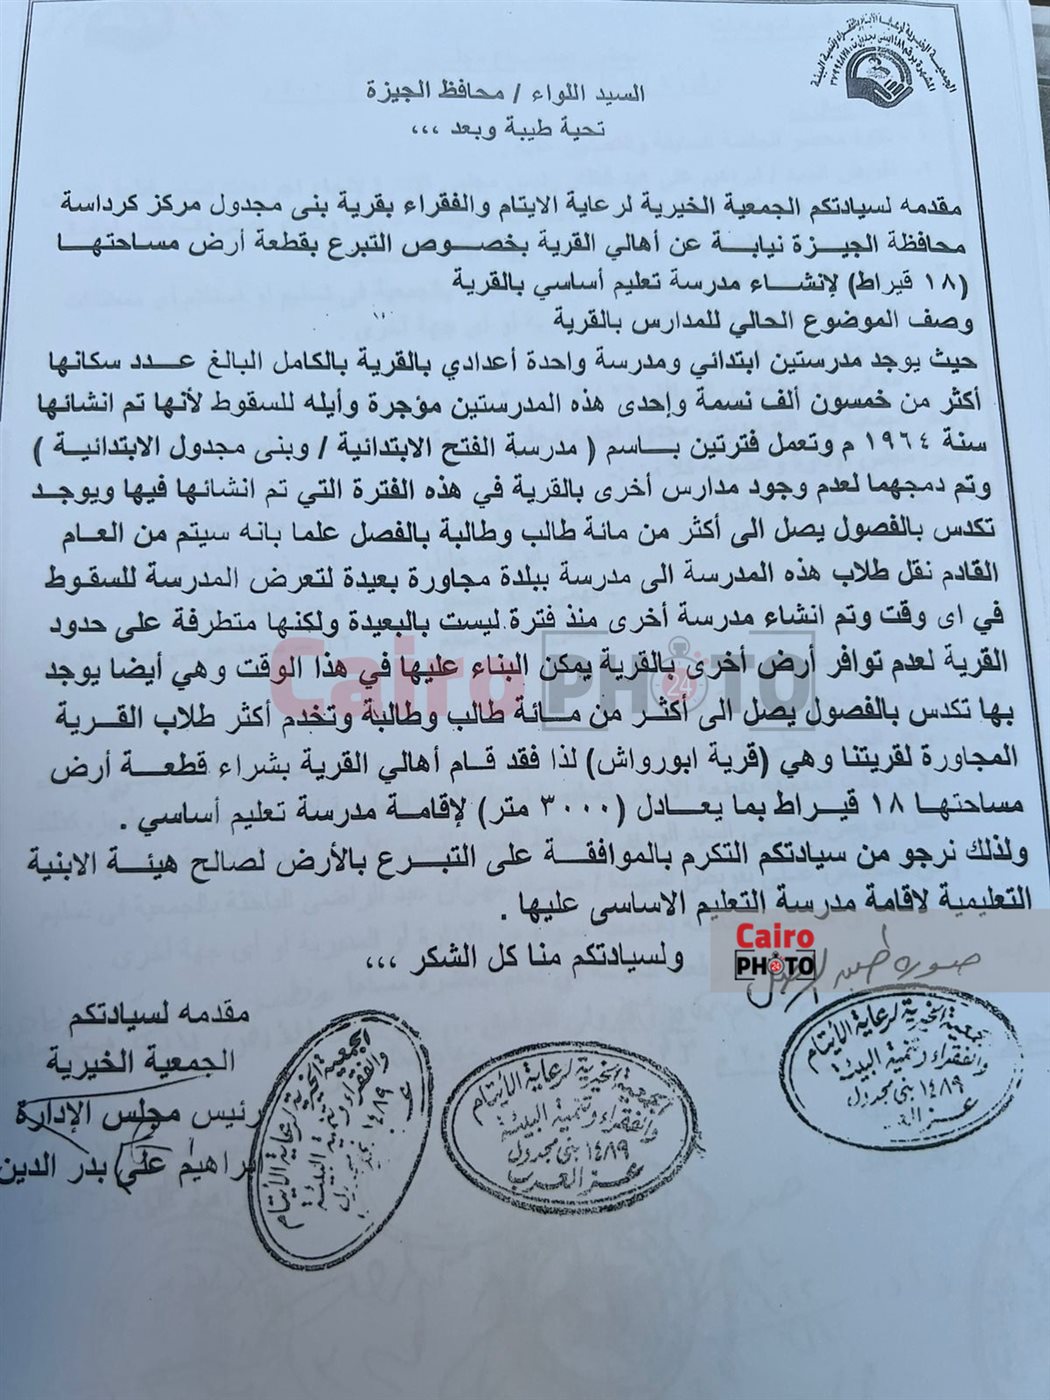 الجمعية الخيرية لرعاية الأيتام والفقراء وتنمية البيئة
السيد اللواء / محافظ الجيزة
تحية طيبة وبعد ،،،
مقدمه لسيادتكم الجمعية الخيرية لرعاية الايتام والفقراء بقرية بنى مجدول مركز كرداسة
محافظة الجيزة نيابة عن أهالي القرية بخصوص التبرع بقطعة أرض مساحتها
(١٨ قيراط) لإنشاء مدرسة تعليم أساسي بالقرية
وصف الموضوع الحالي للمدارس بالقرية
حيث يوجد مدرستين ابتدائي ومدرسة واحدة أعدادي بالقرية بالكامل البالغ عدد سكانها
أكثر من خمسون ألف نسمة وإحدى هذه المدرستين مؤجرة وأيله للسقوط لأنها تم انشائها
سنة ١٩٦٤ م وتعمل فترتين باسم ( مدرسة الفتح الابتدائية / وبنى مجدول الابتدائية )
وتم دمجهما لعدم وجود مدارس أخرى بالقرية في هذه الفترة التي تم انشائها فيها ويوجد
تكدس بالفصول يصل الى أكثر من مائة طالب وطالبة بالفصل علما بانه سيتم من العام
القادم نقل طلاب هذه المدرسة الى مدرسة ببلدة مجاورة بعيدة لتعرض المدرسة للسقوط
في اى وقت وتم انشاء مدرسة أخرى منذ فترة ليست بالبعيدة ولكنها متطرفة على حدود
القرية لعدم توافر أرض أخرى بالقرية يمكن البناء عليها في هذا الوقت وهي أيضا يوجد
Cairo PHOTO 24
بها تكدس بالفصول يصل الى أكثر من مائة طالب وطالبة وتخدم أكثر طلاب القرية
المجاورة لقريتنا وهي (قرية ابورواش) لذا فقد قام أهالي القرية بشراء قطعة أرض
مساحتها ١٨ قيراط بما يعادل (٣٠٠٠ متر) لإقامة مدرسة تعليم أساسي .
ولذلك نرجو من سيادتكم التكرم بالموافقة على التبرع بالأرض لصالح هيئة الابنية
التعليمية لاقامة مدرسة التعليم الاساسى عليها .
ولسيادتكم منا كل الشكر ،،،
Cairo
PHOTO
صورة طبق الأصل
مقدمه لسيادتكم
الجمعية الخيرية
رئيس مجلس الإدارة
ابراهيم على بدر الدين
الجمعية الخيرية لرعاية الأيتام
والفقراء وتنمية البيئة
١٤٨٩
الجمعية الخيرية لرعاية الأيتام
والفقراء وتنمية البيئة
١٤٨٩ بنى مجدول
جمعية الخيرية لرعاية الأيتام
والفقراء وتنمية البيئة
١٤٨٩ بنى مجدول